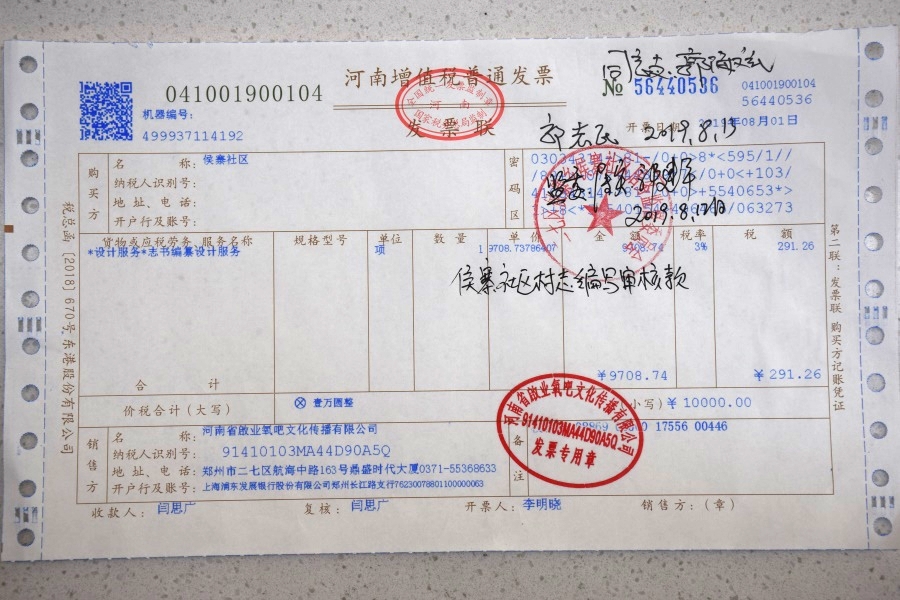 河南增值税普通发票
041001900104
№ 56440536
041001900104
56440536
机器编号:
499937114192
发票联
开票日期
2019年08月01日
2019.8.13
购买方
名 称: 侯寨社区
纳税人识别号:
地址、电话:
开户行及账号:
密码区
2019.8.13日
货物或应税劳务、服务名称 规格型号 单位 数量 单价 金额 税率 税额
*设计服务*志书编纂设计服务 项 1 9708.73786407 9708.74 3% 291.26
侯寨社区村志编写审核款
合 计 ¥9708.74 ¥291.26
价税合计(大写) ⊗ 壹万圆整 (小写) ¥ 10000.00
销售方
名 称: 河南省啟业氧吧文化传播有限公司
纳税人识别号: 91410103MA44D90A5Q
地址、电话: 郑州市二七区航海中路163号鼎盛时代大厦0371-55368633
开户行及账号: 上海浦东发展银行股份有限公司郑州长江路支行76230078801100000063
备注
17556 00446
河南省啟业氧吧文化传播有限公司
91410103MA44D90A5Q
发票专用章
收款人: 闫思广 复核: 闫思广 开票人: 李明晓 销售方:(章)
税总函[2018]670号东港股份有限公司
第二联:发票联 购买方记账凭证